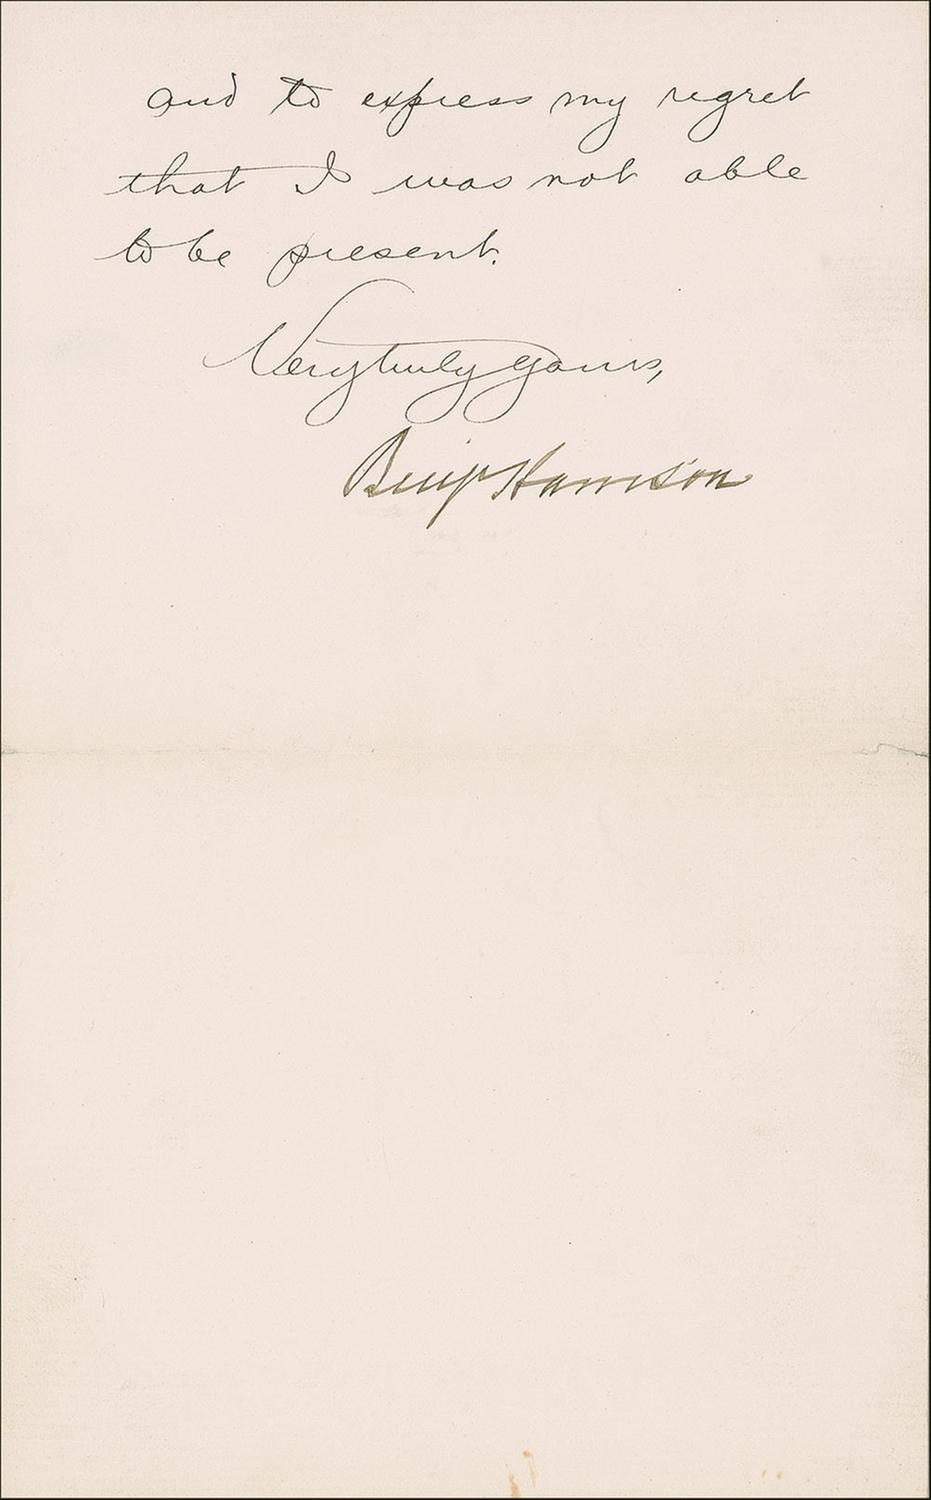 and to express my regret
that I was not able
to be present.
Very truly yours,
Benj Harrison